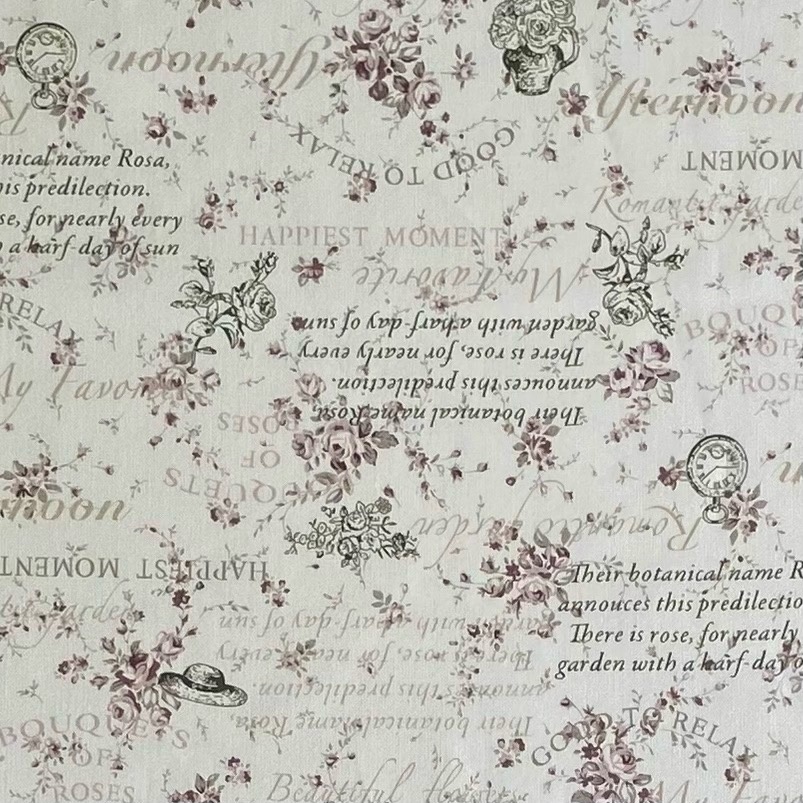 Afternoon
Afternoon
GOOD TO RELAX
MOMENT
nical name Rosa,
his predilection.
se, for nearly every
a karf-day of sun
Romantic garde
HAPPIEST MOMENT
My Favorite
RELAX
garden with a harf-day of sun
There is rose, for nearly every
announces this predilection.
Their botanical name Rosa,
BOUQU
OF
ROSE
My Favorite
ROSES
OF
BOUQUETS
noon
Romantic garden
HAPPIEST MOMENT
Their botanical name R
annouces this predilectio
There is rose, for nearly
garden with a karf-day o
garden
garden with a harf-day of sun
There is rose, for nearly every
announces this predilection.
Their botanical name Rosa,
BOUQUETS
OF
ROSES
GOOD TO RELAX
Beautiful flowers
My Favo